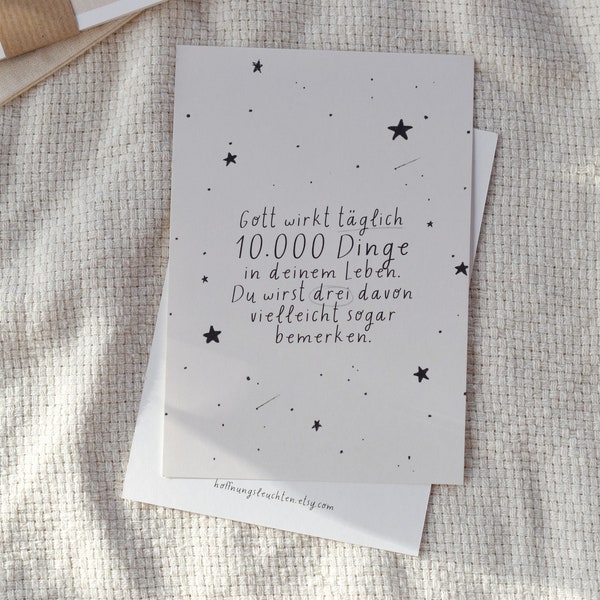 Gott wirkt täglich
10.000 Dinge
in deinem Leben.
Du wirst drei davon
vielleicht sogar
bemerken.
hoffnungsleuchten.etsy.com